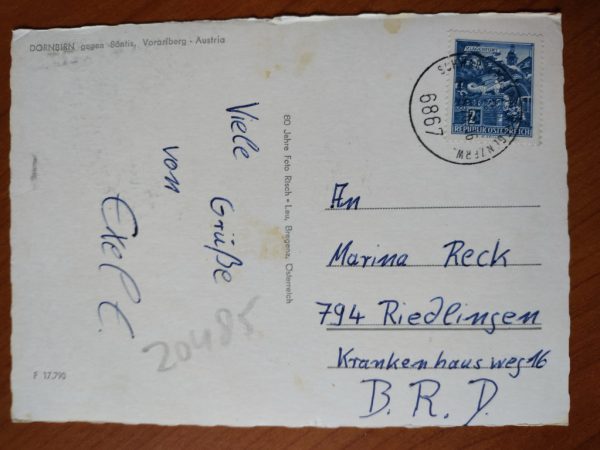 DORNBIRN gegen Säntis, Vorarlberg - Austria
Viele Grüße
von
60 Jahre Foto Risch - Lau, Bregenz, Österreich
20485
F 17.790
KLAGENFURT
2
REPUBLIK ÖSTERREICH
6867
An
Marina Reck
794 Riedlingen
Krankenhausweg 16
B. R. D.